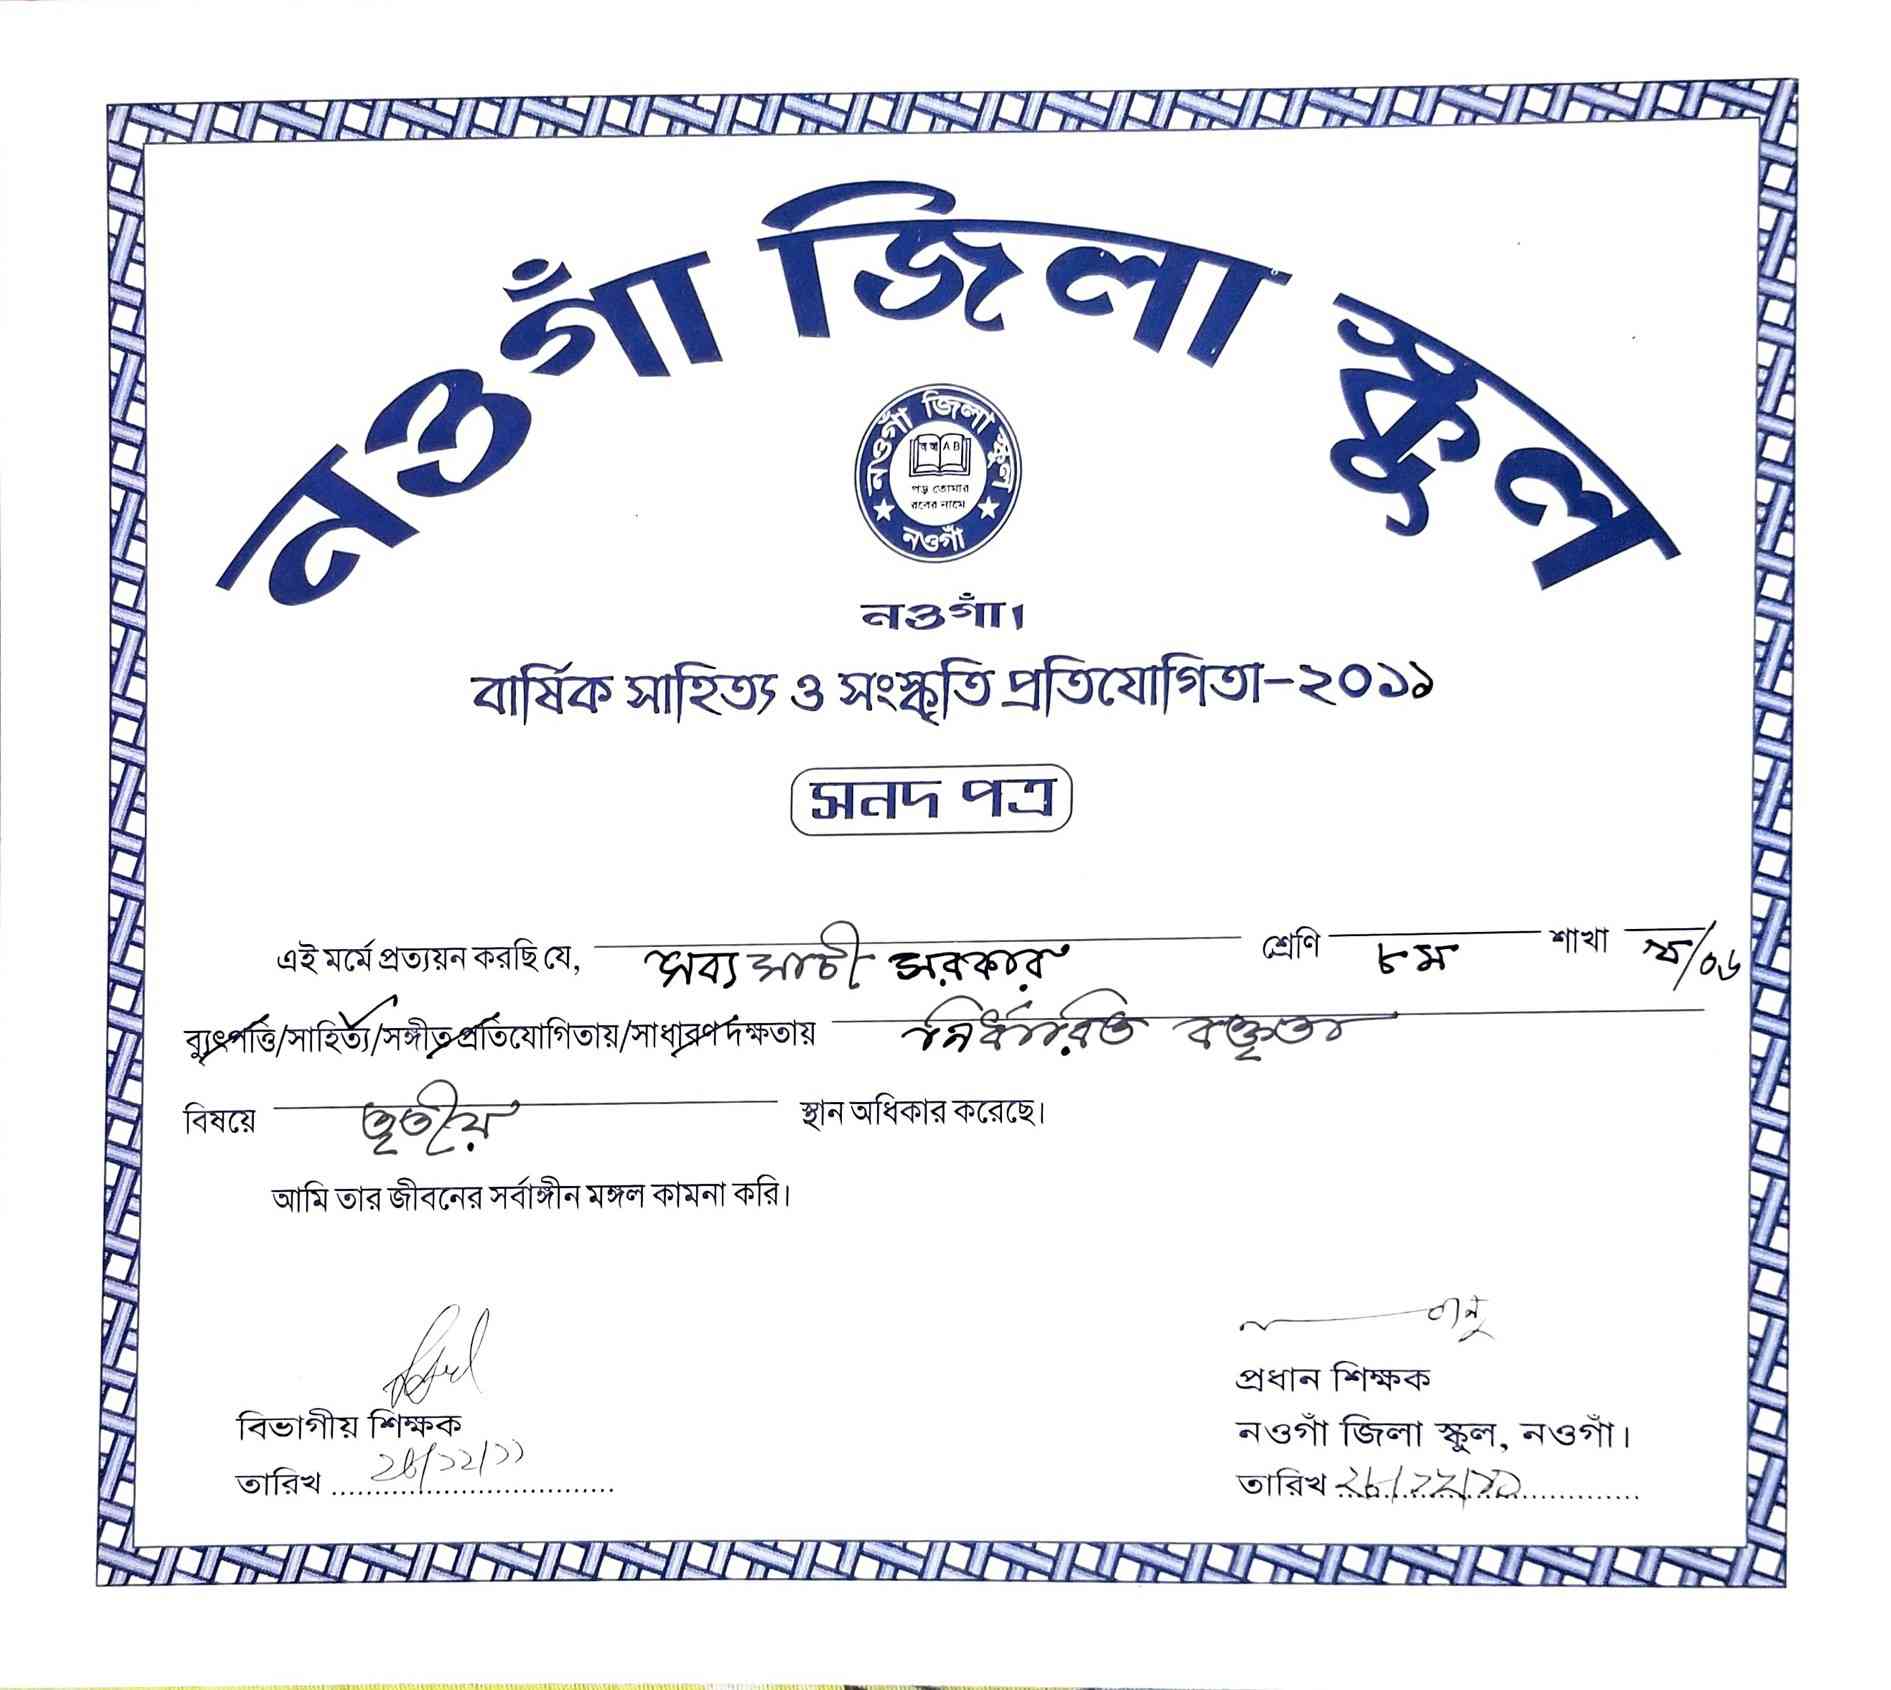 নওগাঁ জিলা স্কুল
নওগাঁ জিলা স্কুল
অ আ A B
পড় তোমার
রবের নামে
নওগাঁ
নওগাঁ।
বার্ষিক সাহিত্য ও সংস্কৃতি প্রতিযোগিতা-২০১১
সনদ পত্র
এই মর্মে প্রত্যয়ন করছি যে, সব্যসাচী সরকার শ্রেণি ৮ম শাখা /০৬
ব্যুৎপত্তি/সাহিত্য/সঙ্গীত প্রতিযোগিতায়/সাধারণ দক্ষতায় নির্ধারিত বক্তৃতা
বিষয়ে তৃতীয় স্থান অধিকার করেছে।
আমি তার জীবনের সর্বাঙ্গীন মঙ্গল কামনা করি।
বিভাগীয় শিক্ষক
তারিখ ২৮/১২/১১
প্রধান শিক্ষক
নওগাঁ জিলা স্কুল, নওগাঁ।
তারিখ ২৮/১২/১১